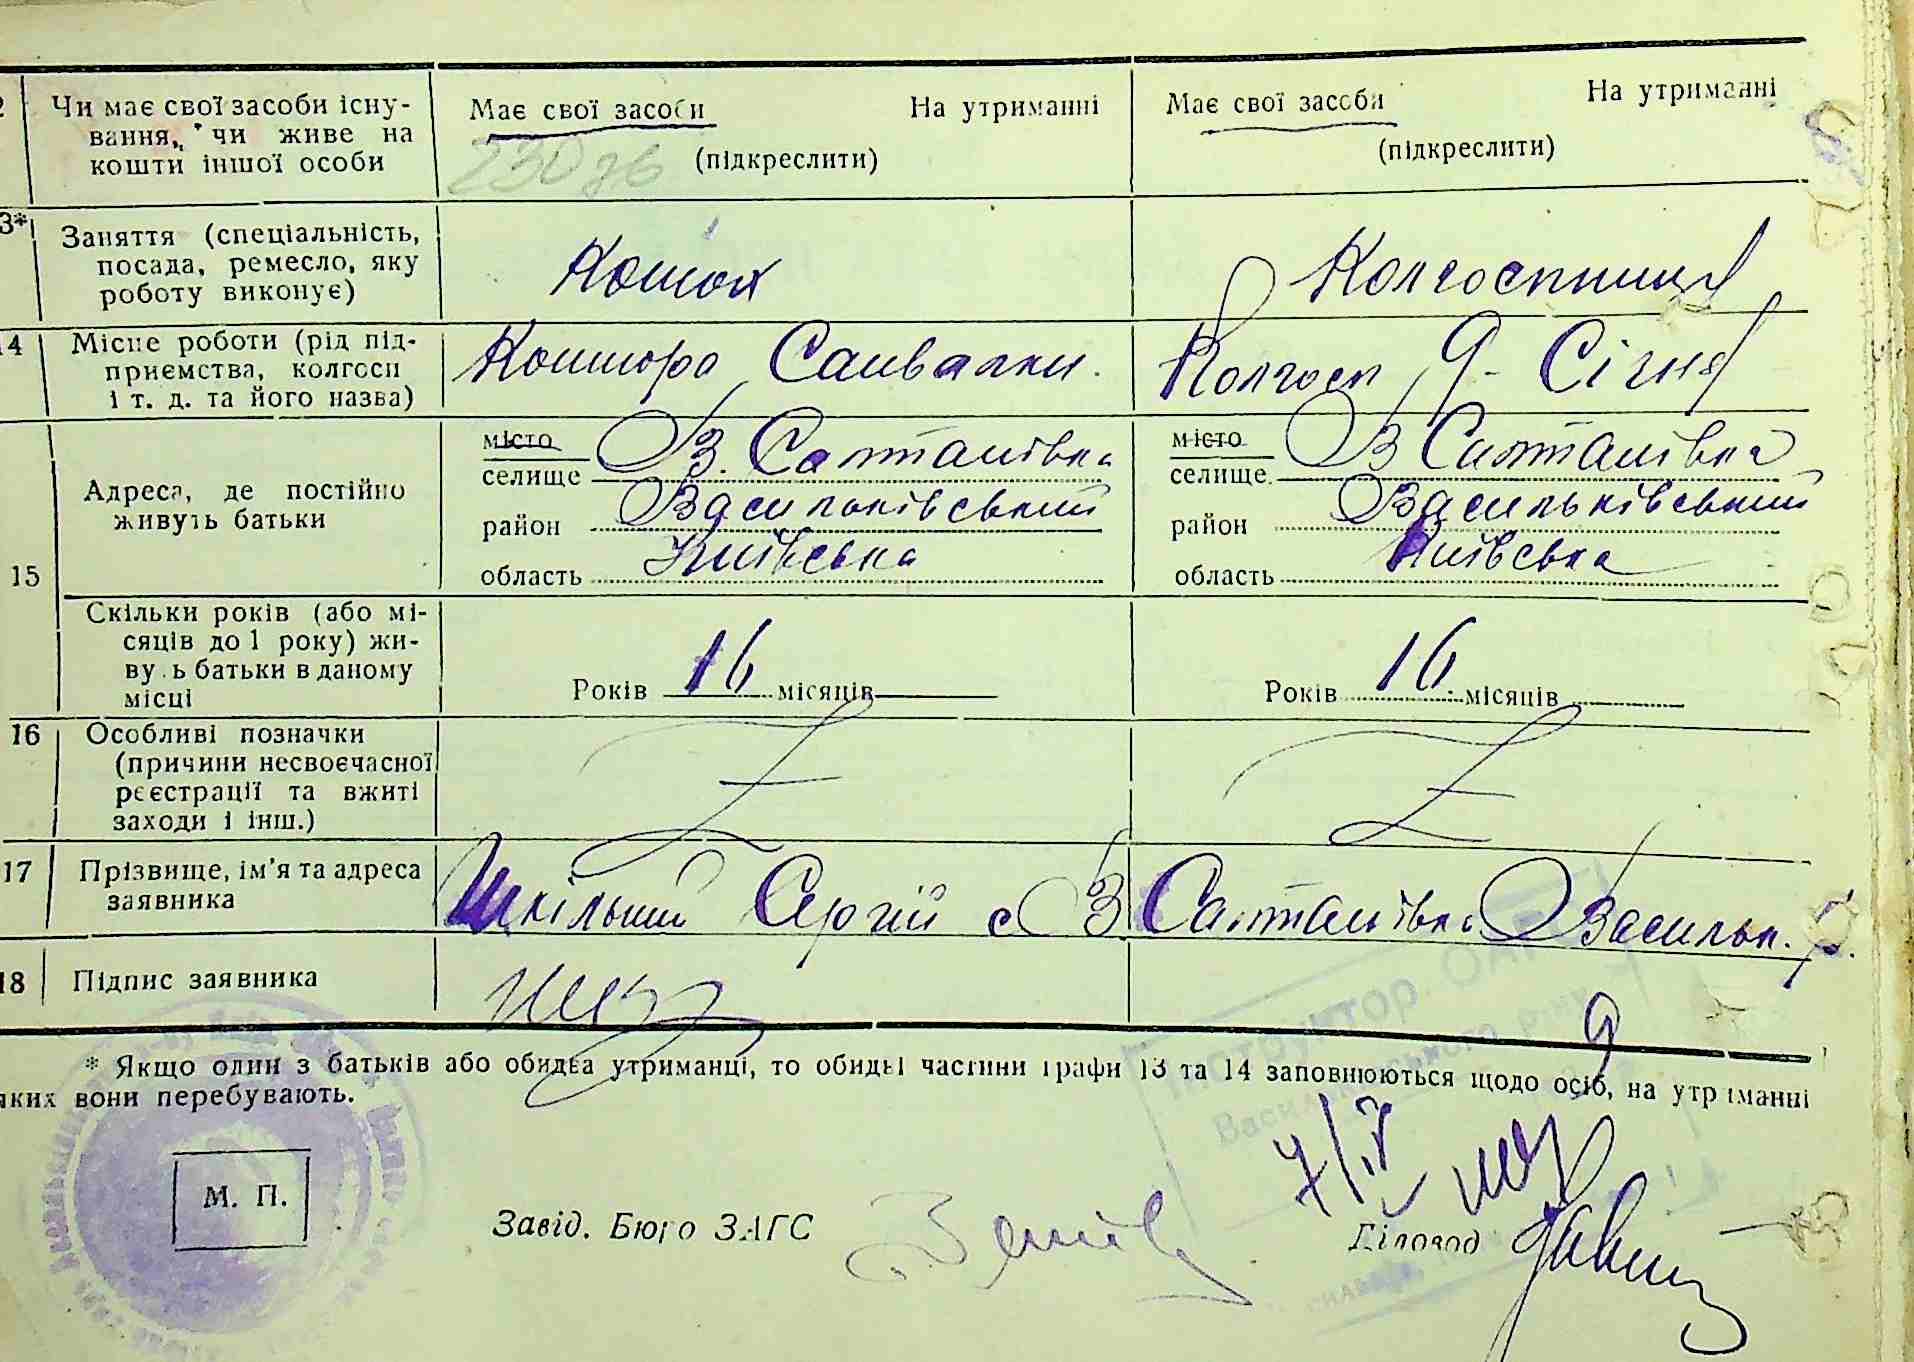 2 Чи має свої засоби існу-
вання, чи живе на
кошти іншої особи
Має свої засоби На утриманні
(підкреслити)
Має свої засоби На утриманні
(підкреслити)
13* Заняття (спеціальність,
посада, ремесло, яку
роботу виконує)
Колгоспниця
14 Місце роботи (рід під-
приємства, колгосп
і т. д. та його назва)
Контора
Колгосп 9 Січня
15 Адреса, де постійно
живуть батьки
місто
селище В. Салтанівка
район Васильківський
область Київська
місто
селище В Салтанівка
район Васильківський
область Київська
Скільки років (або мі-
сяців до 1 року) жи-
вуть батьки в даному
місці
Років 16 місяців
Років 16 місяців
16 Особливі позначки
(причини несвоєчасної
реєстрації та вжиті
заходи і інш.)
17 Прізвище, ім'я та адреса
заявника
Шкільний Сергій с В Салтанівка Васильк. р.
18 Підпис заявника
9
* Якщо один з батьків або обидва утриманці, то обидві частини графи 13 та 14 заповнюються щодо осіб, на утриманні
яких вони перебувають.
Інструктор ОАГС
Васильківського р
7/IV
М. П.
Завід. Бюро ЗАГС
Діловод